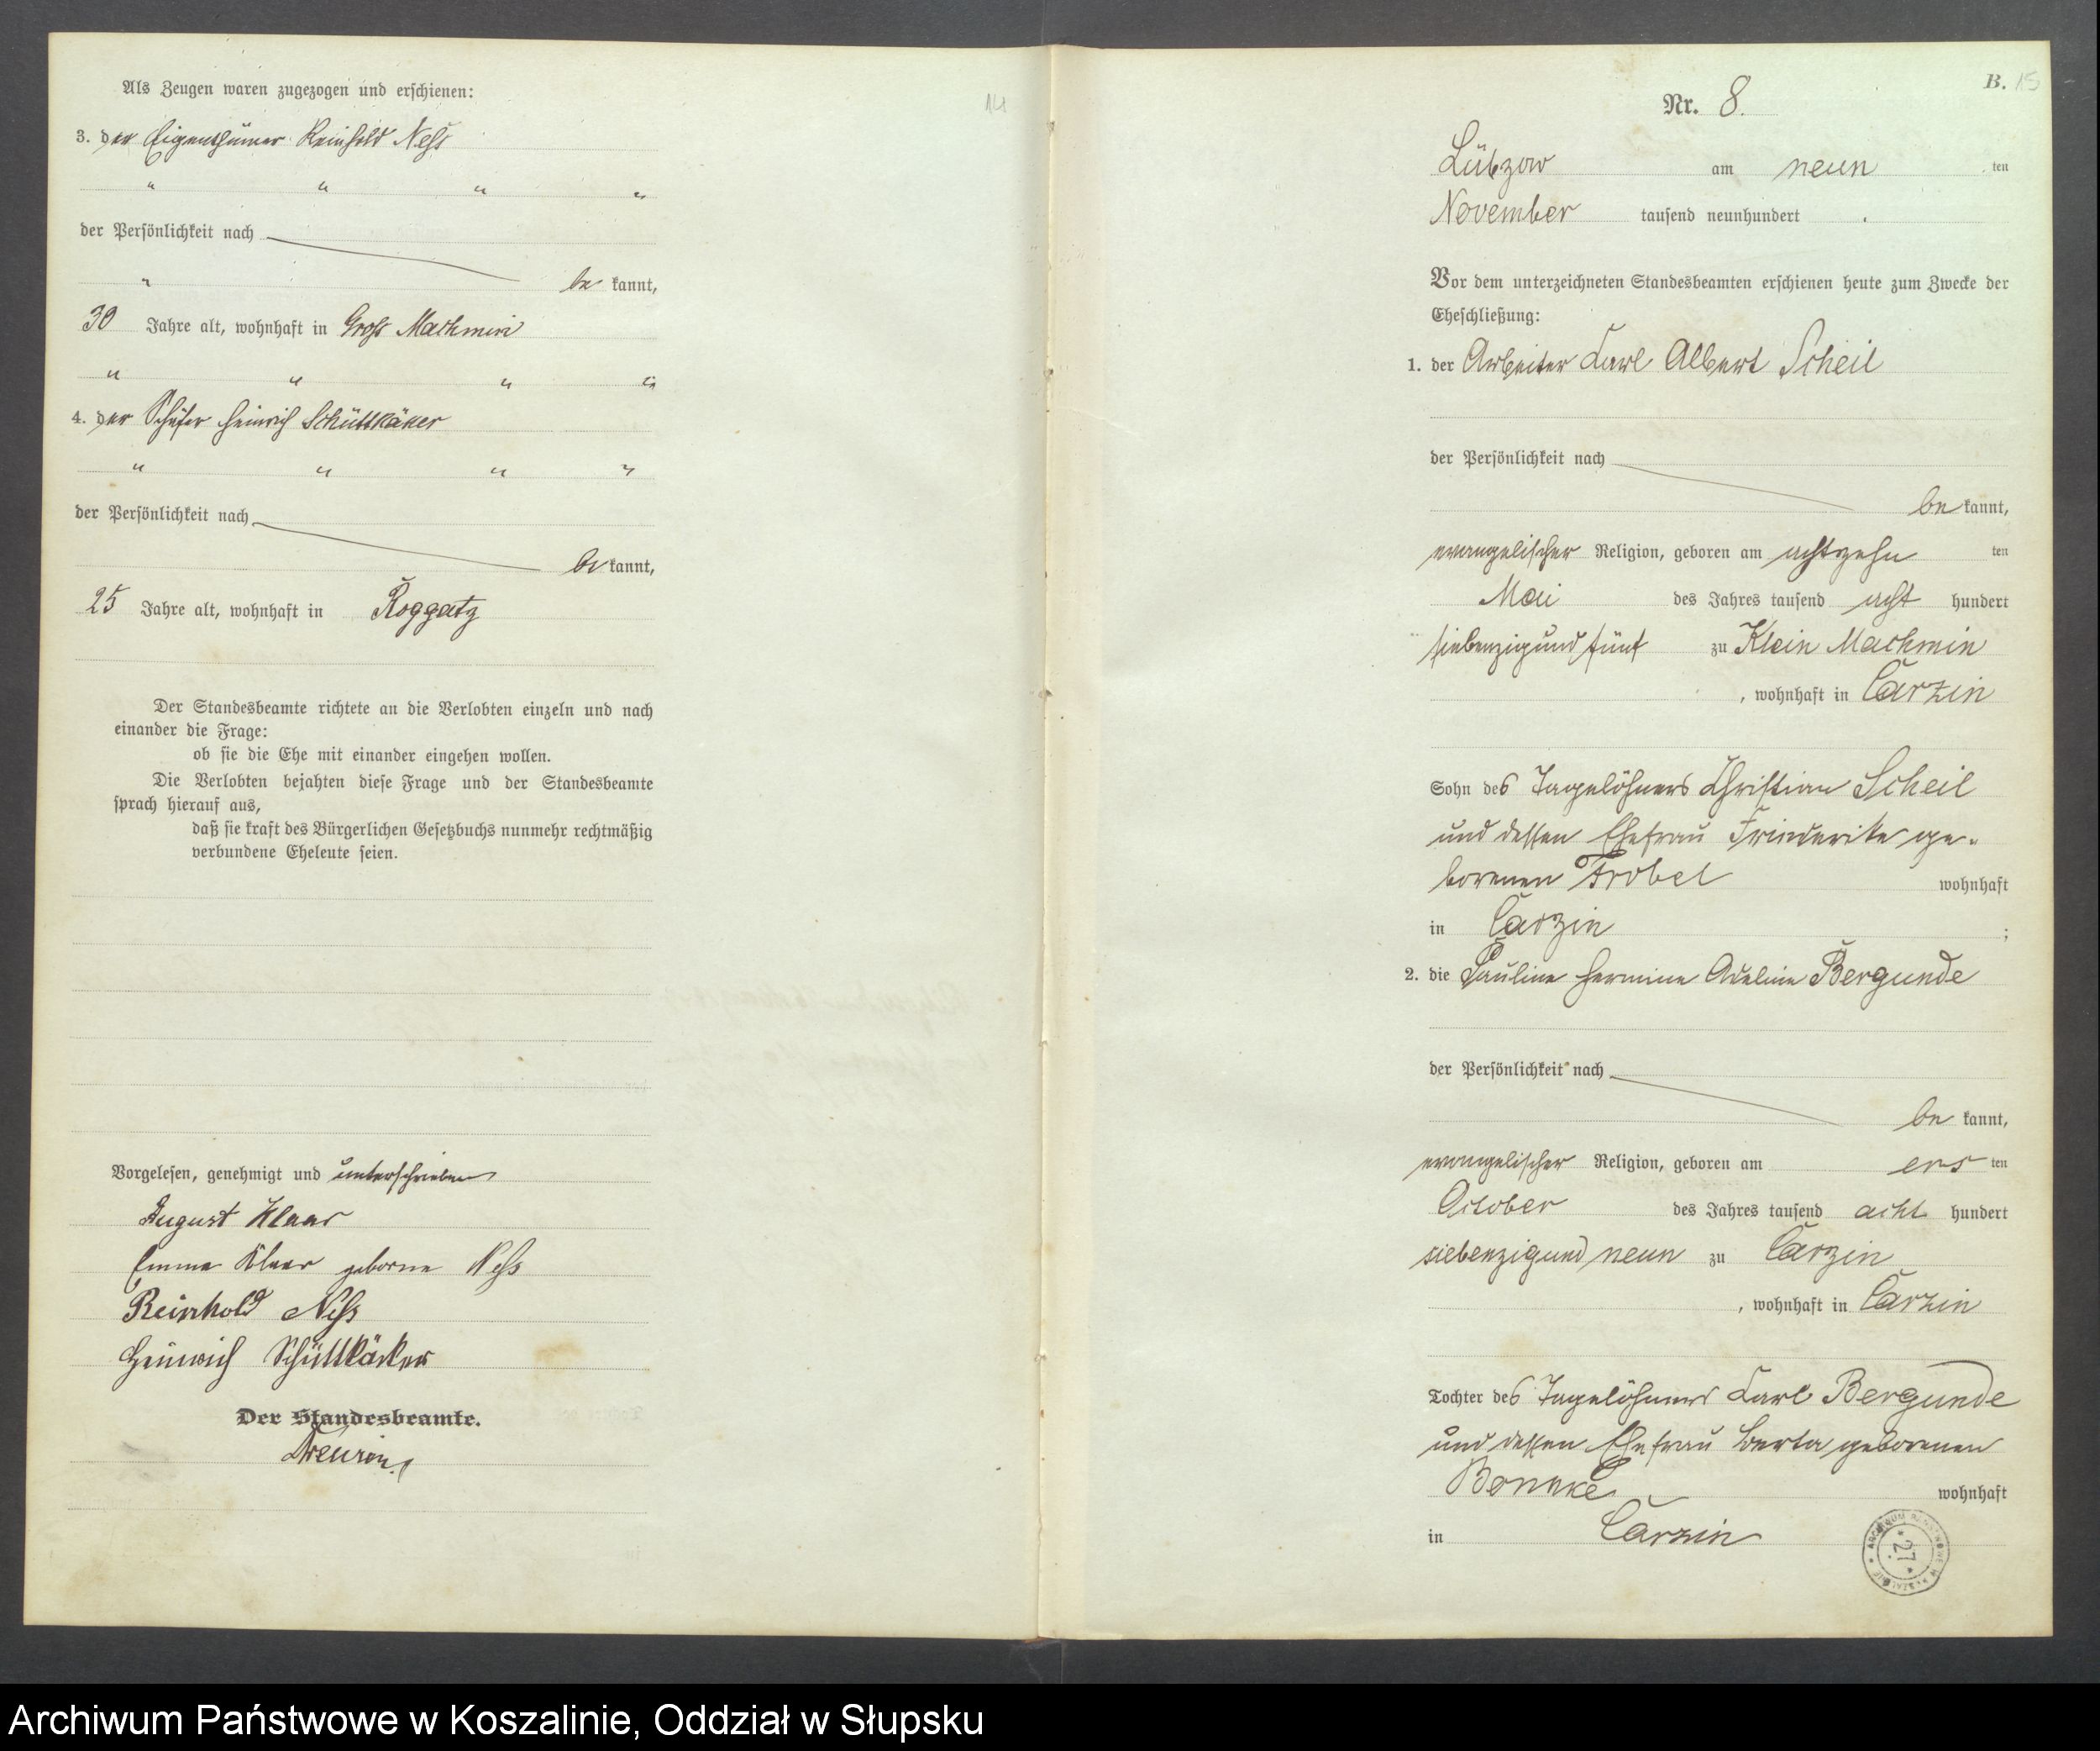 Als Zeugen waren zugezogen und erschienen:
3. der Eigenthümer Reinhold Neß
" " " "
der Persönlichkeit nach
" be kannt,
30 Jahre alt, wohnhaft in Groß Machmin
" " " "
4. der Schäfer Heinrich Schüttkäker
" " " "
der Persönlichkeit nach
be kannt,
25 Jahre alt, wohnhaft in Roggatz
Der Standesbeamte richtete an die Verlobten einzeln und nach
einander die Frage:
ob sie die Ehe mit einander eingehen wollen.
Die Verlobten bejahten diese Frage und der Standesbeamte
sprach hierauf aus,
daß sie kraft des Bürgerlichen Gesetzbuchs nunmehr rechtmäßig
verbundene Eheleute seien.
Vorgelesen, genehmigt und unterschrieben
August Klaar
Emma Klaar geborne Neß
Reinhold Neß
Heinrich Schüttkäker
Der Standesbeamte.
14
B. 15
Nr. 8.
Lübzow am neun ten
November tausend neunhundert .
Vor dem unterzeichneten Standesbeamten erschienen heute zum Zwecke der
Eheschließung:
1. der Arbeiter Karl Albert Scheil
der Persönlichkeit nach
be kannt,
evangelischer Religion, geboren am achtzehn ten
Mai des Jahres tausend acht hundert
siebenzigund fünf zu Klein Machmin
, wohnhaft in Carzin
Sohn des Tagelöhners Christian Scheil
und dessen Ehefrau Friederike ge-
borenen Trobel wohnhaft
in Carzin ;
2. die Pauline Hermine Adeline Bergunde
der Persönlichkeit nach
be kannt,
evangelischer Religion, geboren am ers ten
October des Jahres tausend acht hundert
siebenzigund neun zu Carzin
, wohnhaft in Carzin
Tochter des Tagelöhners Karl Bergunde
und dessen Ehefrau Berta geborenen
wohnhaft
in Carzin
27
Archiwum Państwowe w Koszalinie, Oddział w Słupsku